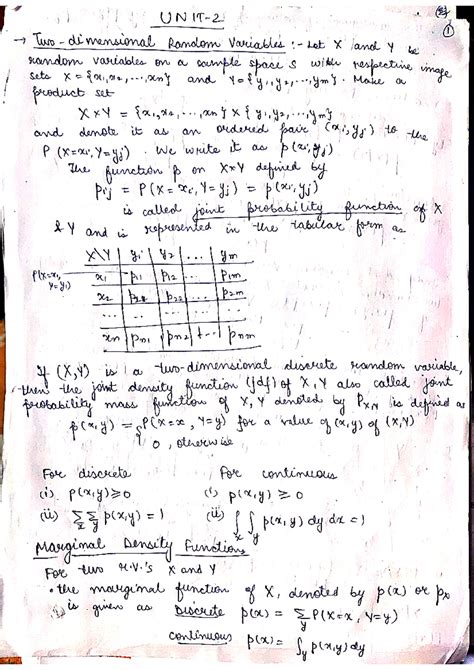 UNIT-2
①
→ Two-dimensional Random Variables :- Let X and Y be
random variables on a sample space S with respective image
sets X = {x1, x2, ..., xn} and Y = {y1, y2, ..., ym}. Make a
product set
X×Y = {x1, x2, ..., xn} × {y1, y2, ..., ym}
and denote it as an ordered pair (xi, yj) to the
P(X=xi, Y=yj). We write it as p(xi, yj)
The function p on X×Y defined by
pij = P(X=xi, Y=yj) = p(xi, yj)
is called joint probability function of X
& Y and is represented in the tabular form as
X\Y | y1 | y2 | ... | ym
P(X=x1, Y=y1)
x1 | p11 | p12 | ... | p1m
x2 | p21 | p22 | ... | p2m
... | ... | ... | ... | ...
xn | pn1 | pn2 | ... | pnm
If (X,Y) is a two-dimensional discrete random variable,
then the joint density function (jdf) of X, Y also called joint
probability mass function of X, Y denoted by PX,Y is defined as
p(x,y) = { P(X=x, Y=y) for a value of (x,y) of (X,Y)
0, otherwise
For discrete For continuous
(i) p(x,y) ≥ 0 (i) p(x,y) ≥ 0
(ii) ∑x ∑y p(x,y) = 1 (ii) ∫x ∫y p(x,y) dy dx = 1
Marginal Density Functions
For two r.v.'s X and Y
• the marginal function of X, denoted by p(x) or px
is given as Discrete p(x) = ∑y P(X=x, Y=y)
continuous p(x) = ∫y p(x,y) dy